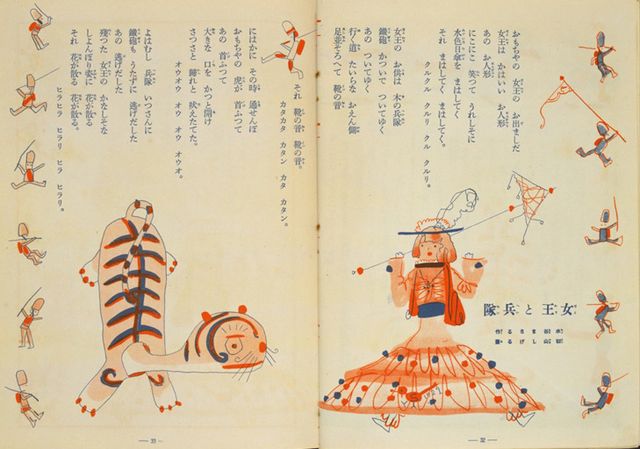 女王と兵隊
水谷まさる作
初山しげる畫
おもちやの 女王の お出ましだ
女王は かはいい お人形
あの お人形
にこにこ 笑つて うれしそに
水色日傘を まはしてく
それ まはしてく まはしてく。
クルクル クルリ クル クルリ。
女王の お供は 木の兵隊
鐵砲 かついで ついてゆく
あの ついてゆく
行く道 たいらな おえん側
足並そろへて 靴の音
— 32 —
それ 靴の音 靴の音。
カタカタ カタン カタ カタン。
にはかに その時 通せんぼ
おもちやの 虎が 首ふつて
あの 首ふつて
大きな 口を かつと開け
さつさと 歸れと 吠えたてた。
オウオウ オウ オウ オウオ。
よはむし 兵隊 いつさんに
鐵砲も うたずに 逃げだした
あの 逃げだした
殘つた 女王の かなしそな
しよんぼり姿に 花が散る
それ 花が散る 花が散る。
ヒラヒラ ヒラリ ヒラ ヒラリ。
— 33 —